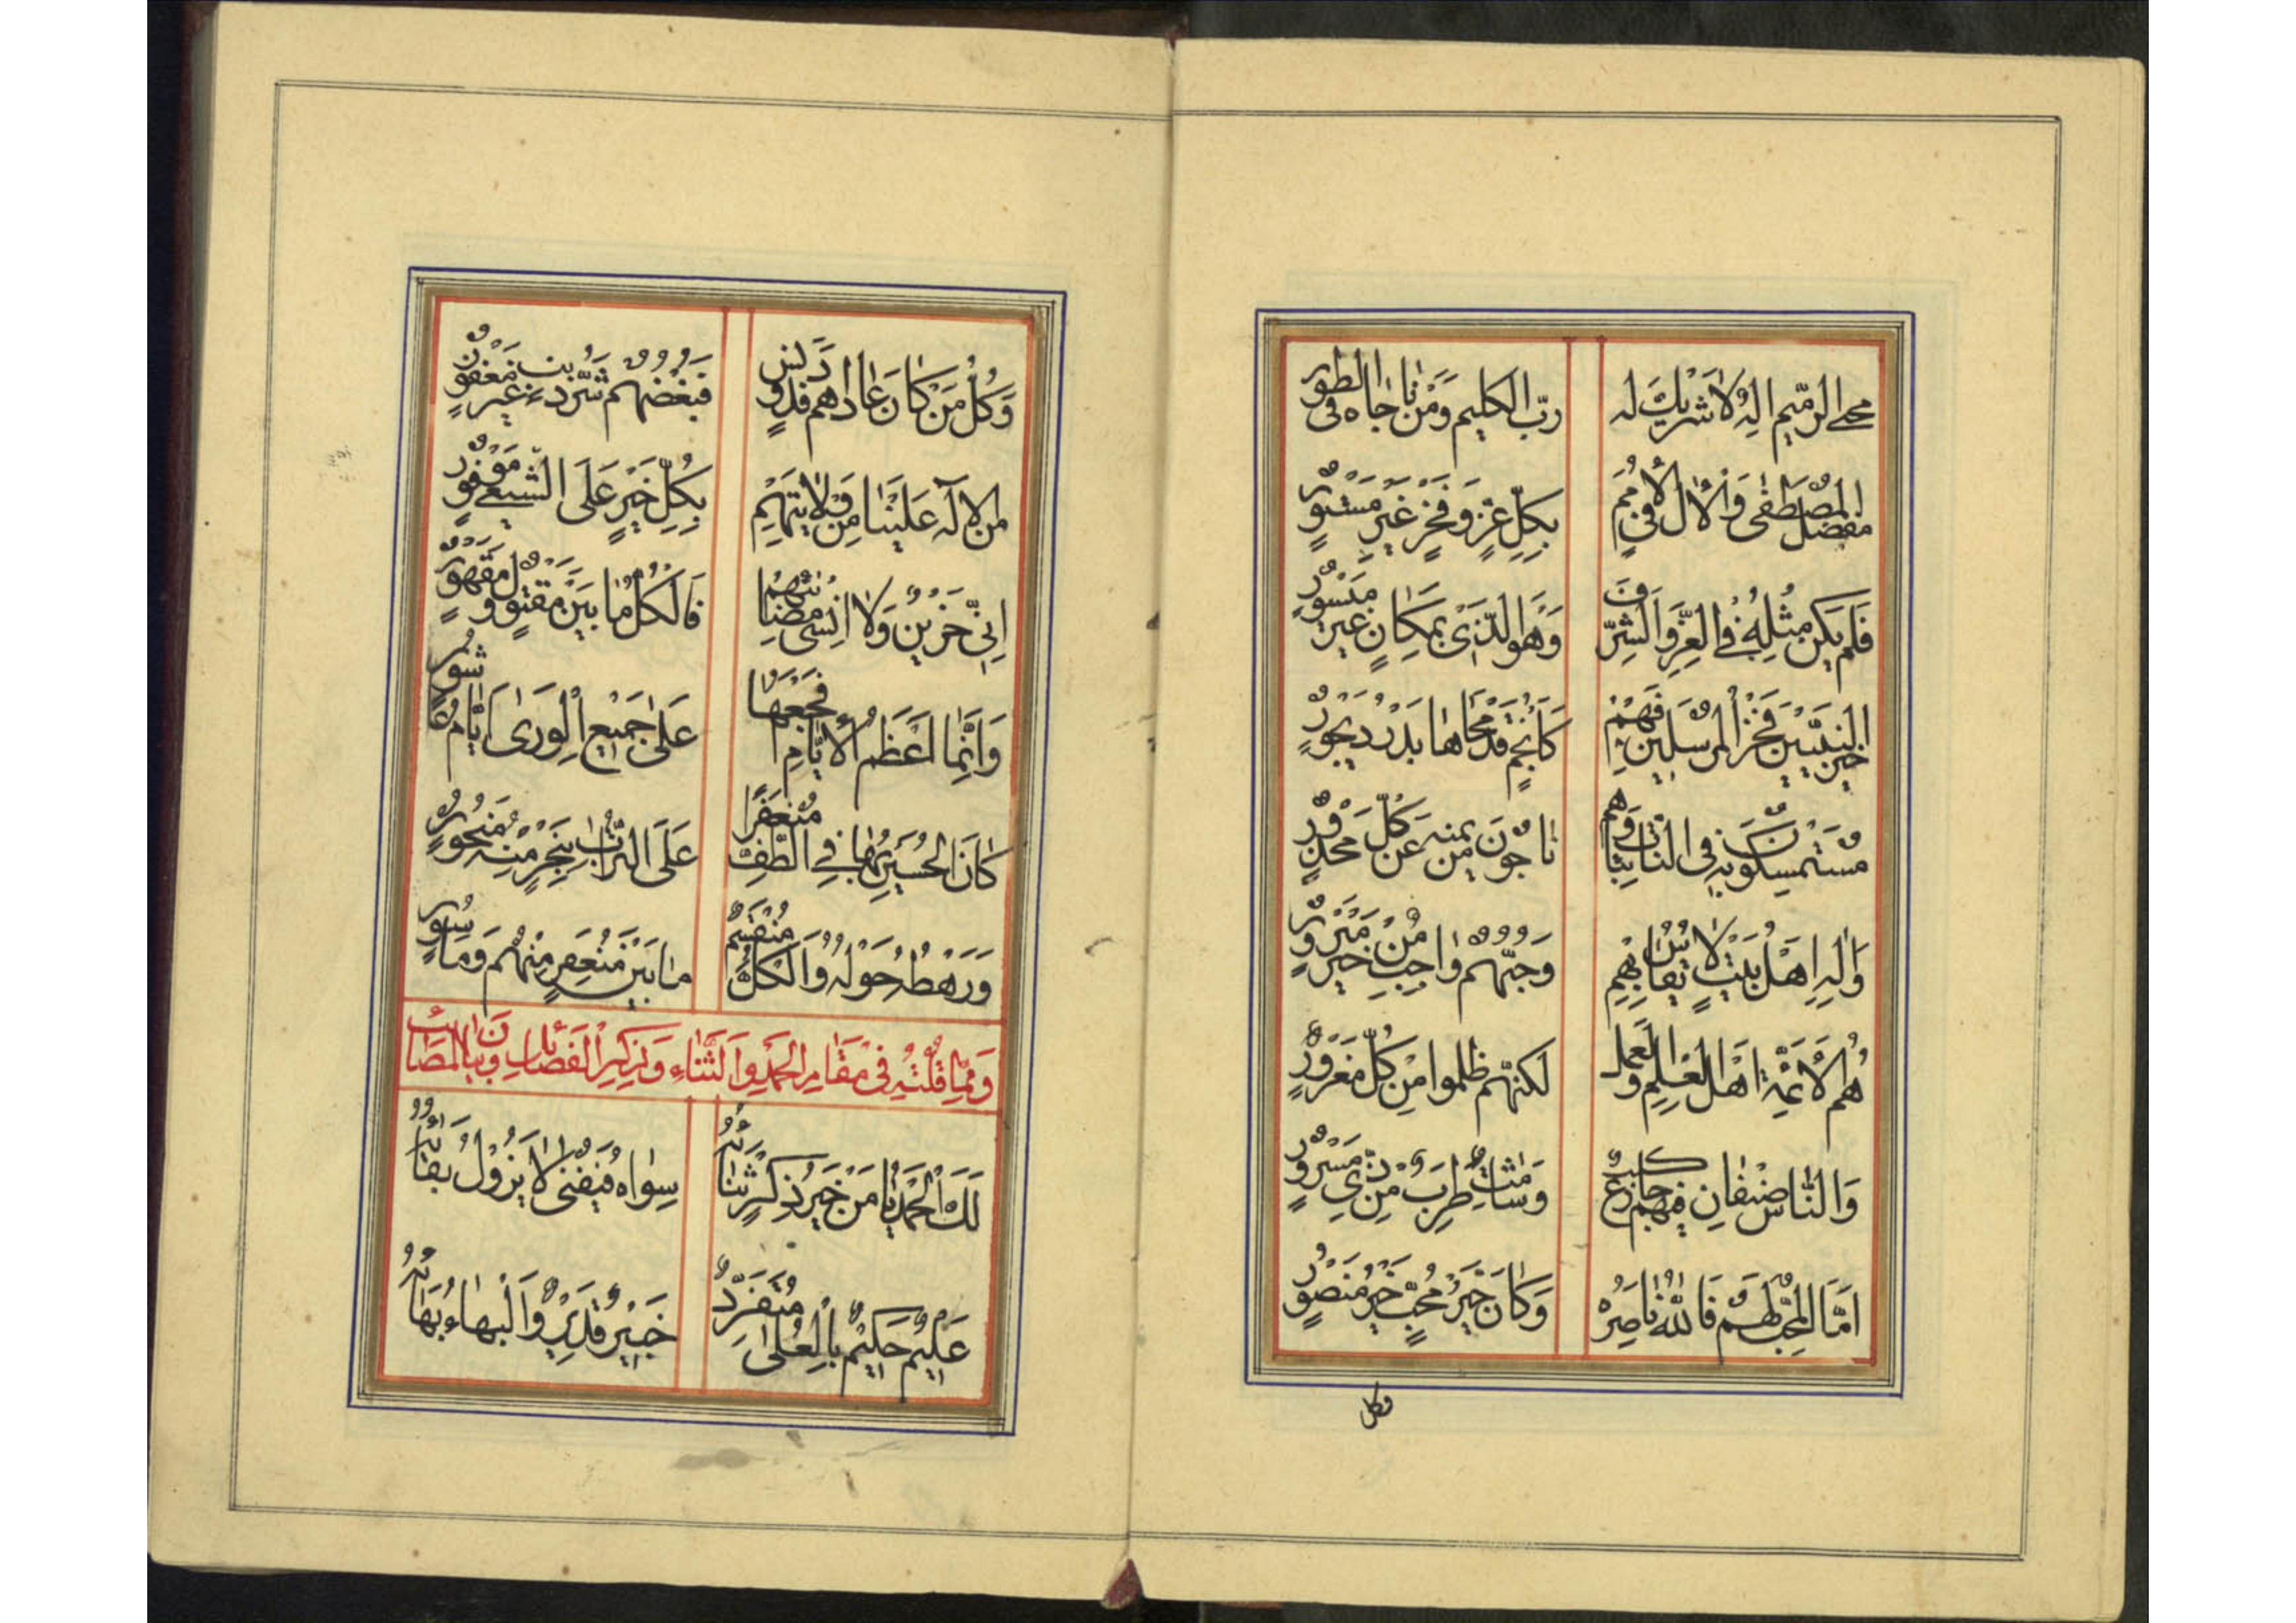 محيي الرّميم الهٌ لا شريك له ربّ الكليم ومن ناجاه فى الطور
المصطفى وآلال الأولى مفضل بكلّ عزّ وفخر غير مستور
فلم يكن مثله في العزّ والشرف وهو الّذى بمكان غير ميسور
خير النبيّين فخر المرسلين فهم كأنجم قد محاها بدر ديجور
مستمسكون به فى النائبات وهم ناجون من يمنه عن كلّ محذور
وآله اهل بيت لا يقاس بهم وحبّهم واجب من خير مبرور
هم الأئمّة اهل العلم والعمل لكنّهم ظلموا من كلّ مغرور
والنّاس صنفان فيهم جازع كئب وشامت طرب من ذى مسرور
امّا المحبّ لهم فالله ناصره وكان خير محبّ خير منصور
وكل
وكلّ من كان عاداهم فذو دنس فبغضهم شرّ ذنب غير مغفور
من الاله علينا من ولايتهم بكلّ خير على الشّيعي موفور
انّي حزين ولا انسى مصائبهم فالكلّ ما بين مقتول ومقهور
وانّما اعظم الأيّام افجعها على جميع الورى ايّام عاشور
كان الحسين بها في الطّف منعفرًا على التراب بنحر منه منحور
ورهطه حوله والكلّ منقسم ما بين منعفر منهم ومأسور
وممّا قلته في مقام الحمد والثّناء وذكر الفضائل وبيان المصائب
لك الحمد يا من خير ذكر ثناؤه سواه فيفنى لا يزول بقاؤه
عليم حكيم بالعلى متفرّد خبير قدير والبهاء بهاؤه